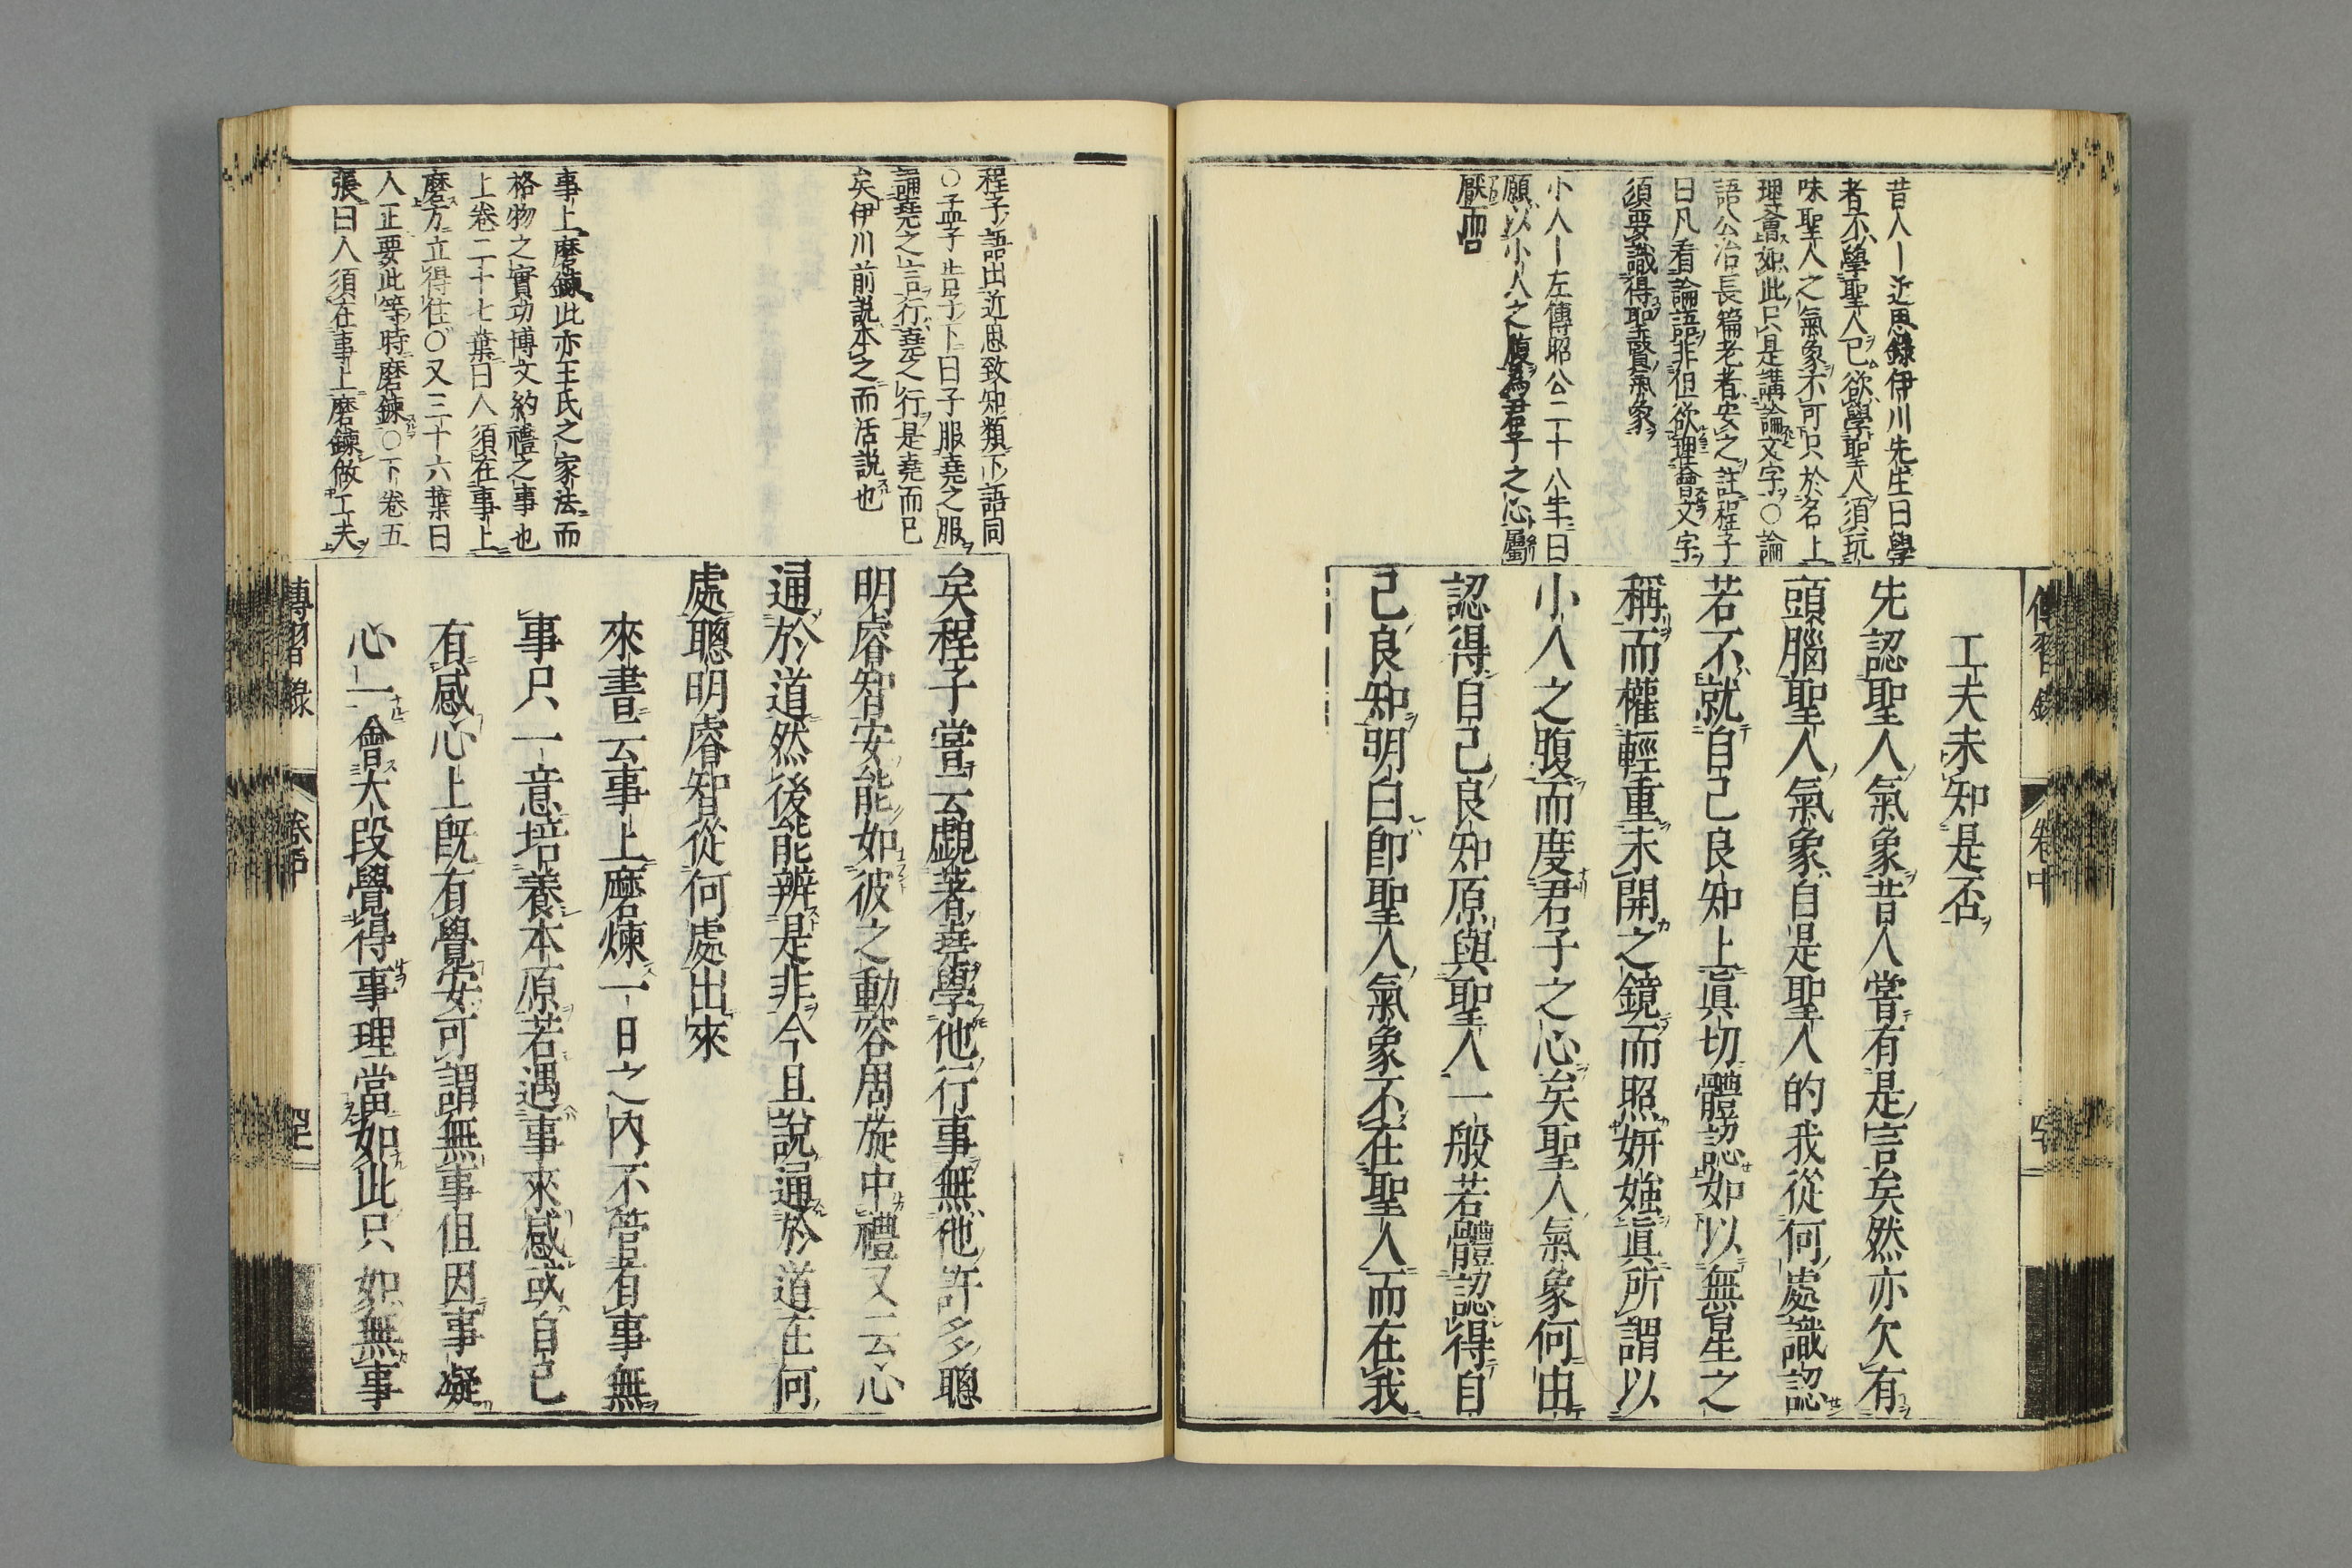 昔人—近思錄伊川先生曰學
者不學聖人已欲學聖人須玩
味聖人之氣象不可只於名上
理會如此只是講論文字○論
語公冶長篇老者安之註程子
曰凡看論語非但欲理會文字
須要識得聖賢氣象
小人—左傳昭公二十八年曰
願以小人之腹為君子之心屬
厭而已
工夫未知是否
先認聖人氣象昔人嘗有是言矣然亦欠有
頭腦聖人氣象自是聖人的我從何處識認
若不就自己良知上眞切體認如以無星之
稱而權輕重未開之鏡而照妍媸眞所謂以
小人之腹而度君子之心矣聖人氣象何由
認得自己良知原與聖人一般若體認得自
己良知明白卽聖人氣象不在聖人而在我
傳習錄 卷中
程子語出近思致知類下語同
○孟子告子下曰子服堯之服
誦堯之言行堯之行是堯而已
矣伊川前說本之而活說也
事上磨鍊此亦王氏之家法而
格物之實功博文約禮之事也
上卷二十七葉曰人須在事上
磨方立得住○又三十六葉曰
人正要此等時磨鍊○下卷五
張曰人須在事上磨鍊做工夫
矣程子嘗云覷著堯學他行事無他許多聰
明睿智安能如彼之動容周旋中禮又云心
通於道然後能辨是非今且說通於道在何
處聰明睿智從何處出來
來書云事上磨煉一日之內不管有事無
事只一意培養本原若遇事來感或自己
有感心上旣有覺安可謂無事但因事凝
心一會大段覺得事理當如此只如無事
傳習錄 卷中